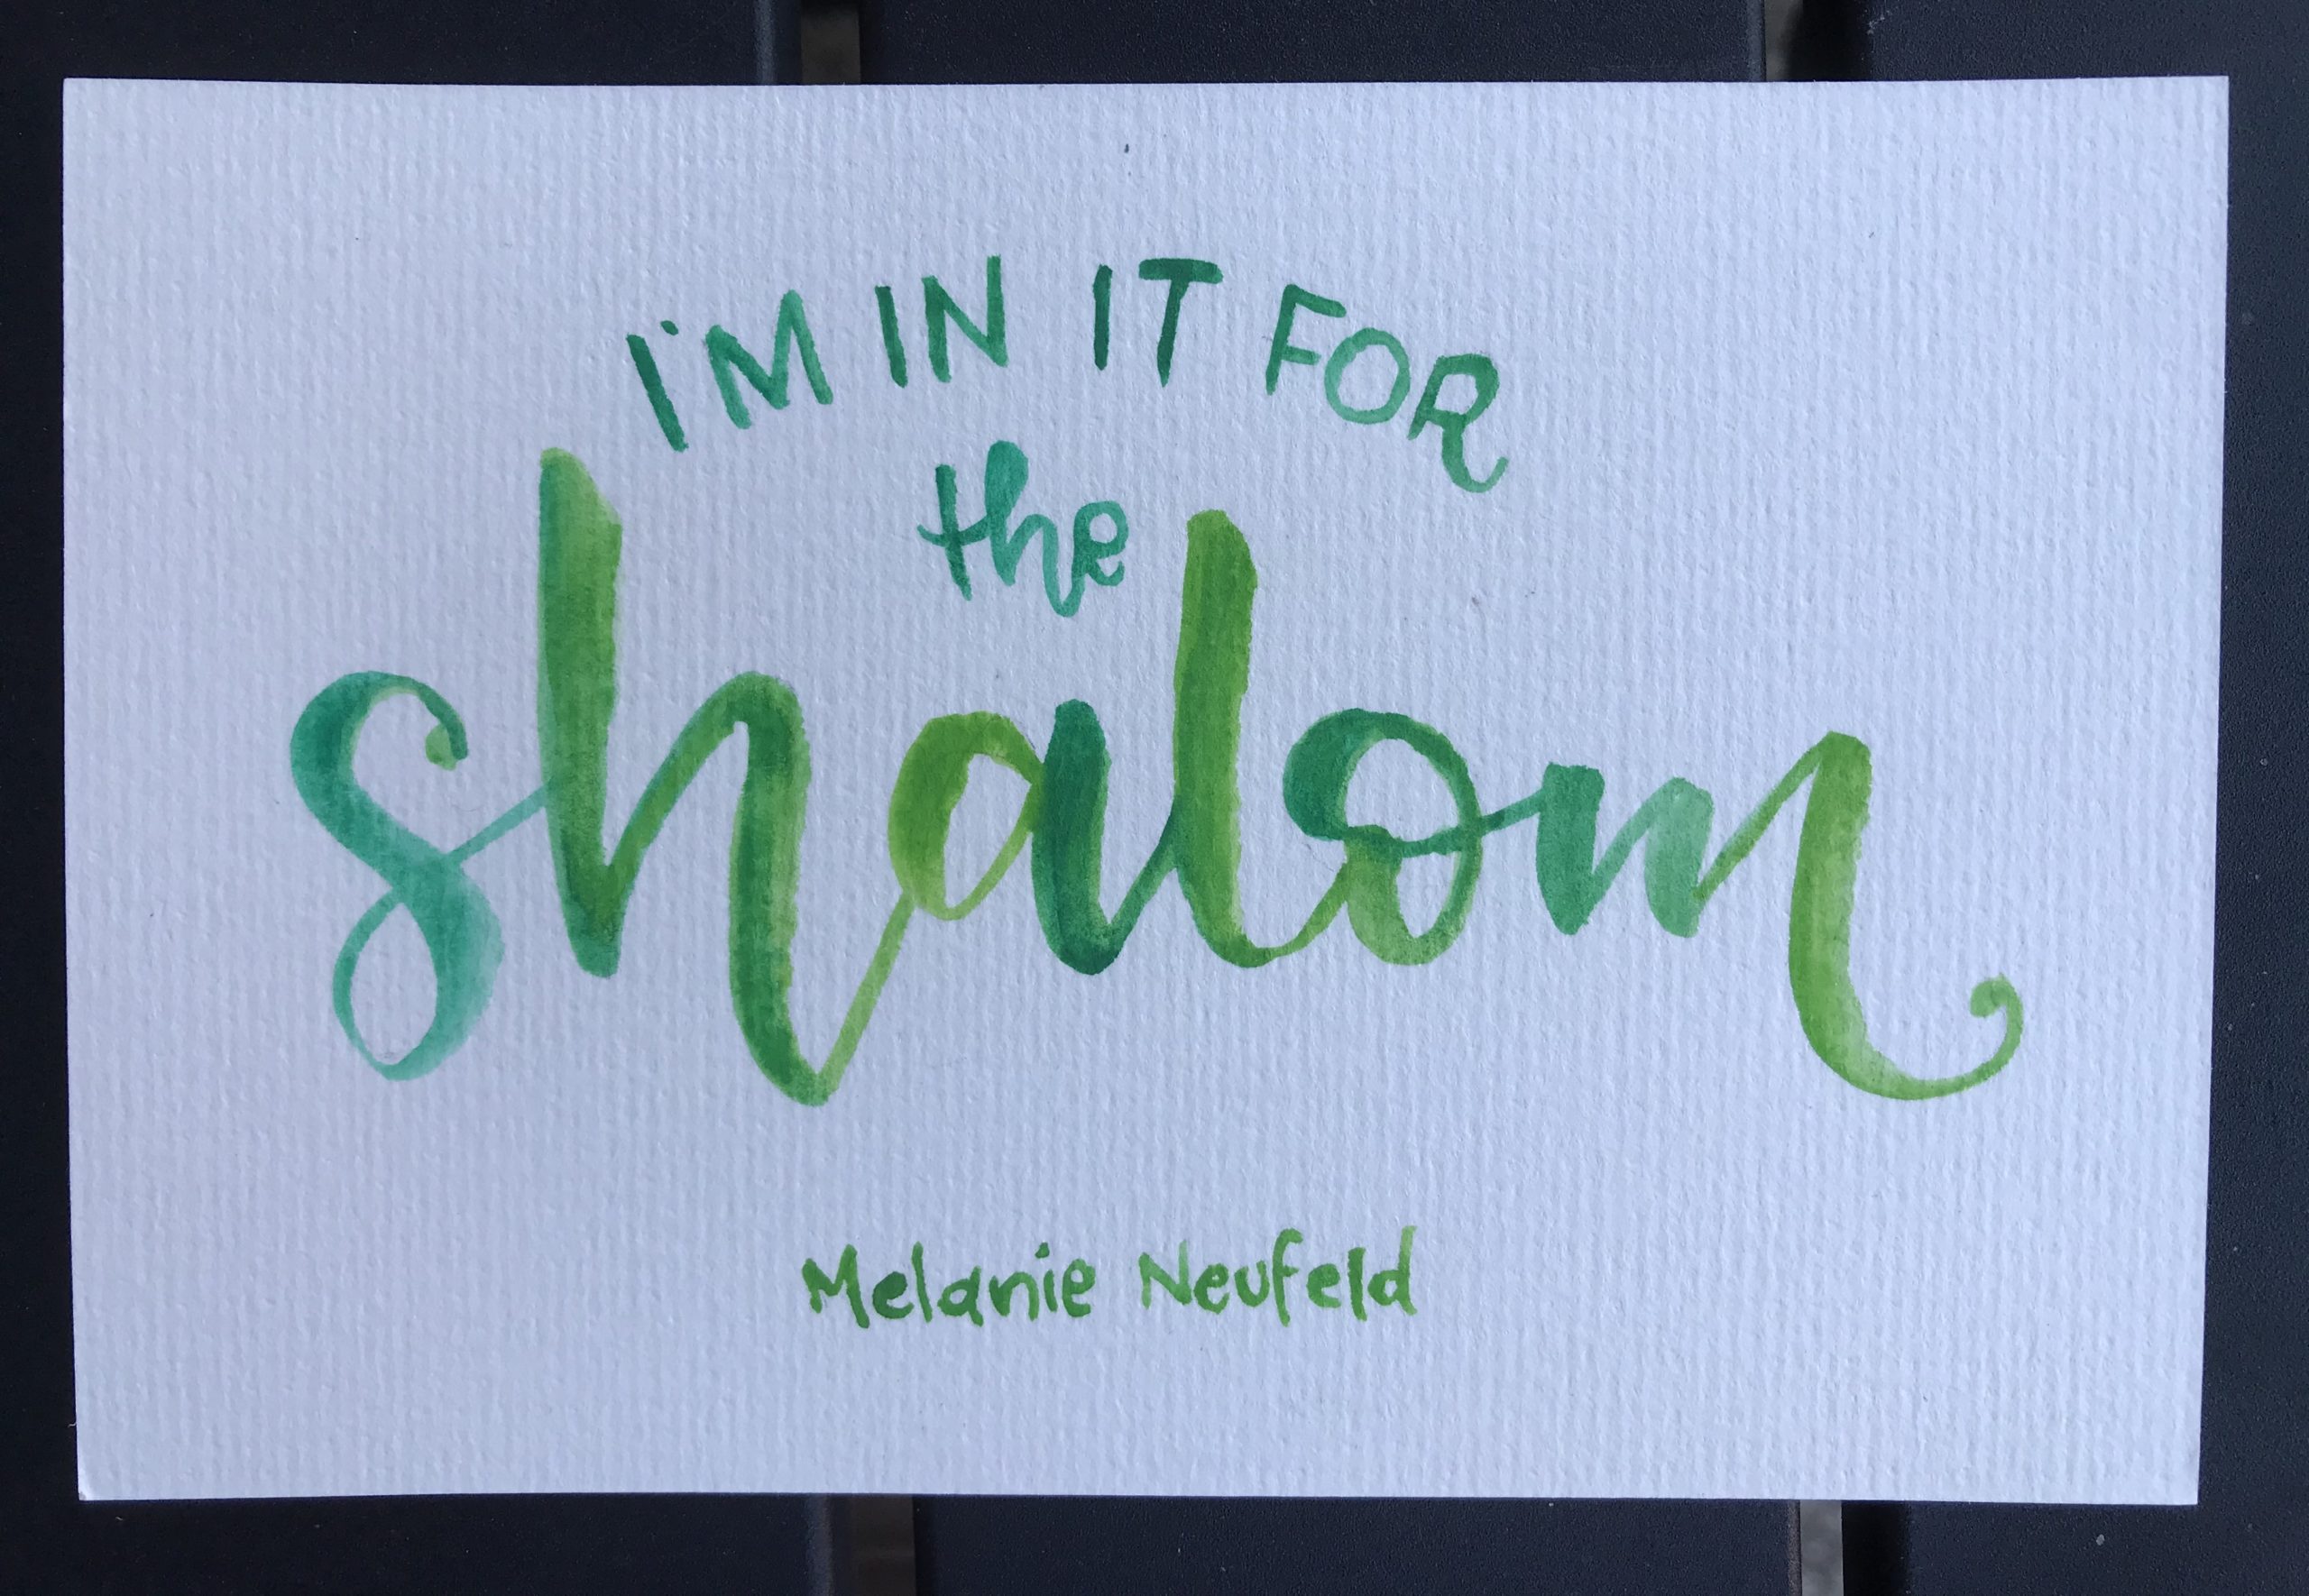 I'M IN IT FOR
the
shalom
Melanie Neufeld